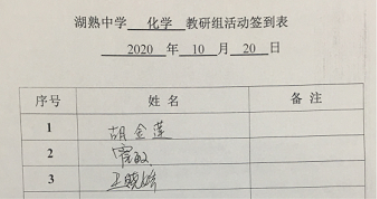 湖熟中学 化学 教研组活动签到表
2020 年 10 月 20 日
序号 姓名 备注
1 胡金莲
2
3 王晓